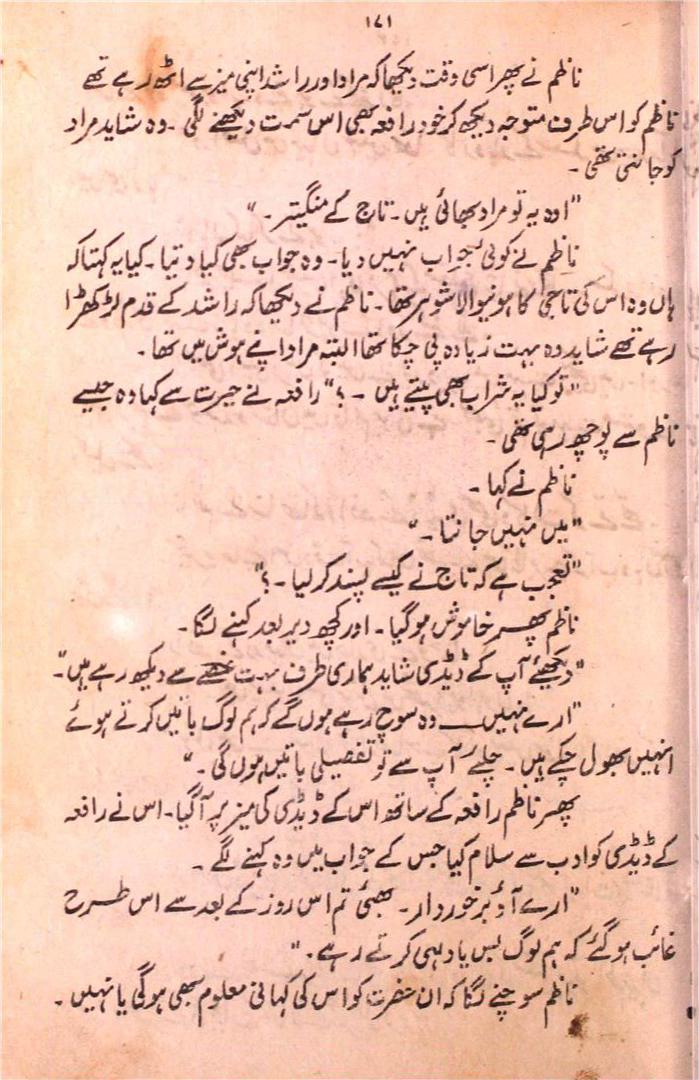 ۱۷۱
ناظم نے پھر اسی وقت دیکھا کہ مراد اور راشد اپنی میز سے اٹھ رہے تھے
ناظم کو اس طرف متوجہ دیکھ کر خود رافعہ بھی اس سمت دیکھنے لگی ۔ وہ شاید مراد
کو جانتی تھی ۔
"اوہ یہ تو مراد بھائی ہیں ۔ تاج کے منگیتر ۔ "
ناظم نے کوئی جواب نہیں دیا ۔ وہ جواب بھی کیا دیتا ۔ کیا یہ کہتا کہ
ہاں وہ اس کی تاجی کا ہونیوالا شوہر تھا ۔ ناظم نے دیکھا کہ راشد کے قدم لڑکھڑا
رہے تھے شاید وہ بہت زیادہ پی چکا تھا البتہ مراد اپنے ہوش میں تھا ۔
"تو کیا یہ شراب بھی پیتے ہیں ۔ ؟" رافعہ نے حیرت سے کہا وہ جیسے
ناظم سے پوچھ رہی تھی ۔
ناظم نے کہا ۔
"میں نہیں جانتا ۔ "
"تعجب ہے کہ تاج نے کیسے پسند کر لیا ۔ ؟"
ناظم پھر خاموش ہو گیا ۔ اور کچھ دیر بعد کہنے لگا ۔
"دیکھئے آپ کے ڈیڈی شاید ہماری طرف بہت غصے سے دیکھ رہے ہیں" ۔
"ارے نہیں ــــ وہ سوچ رہے ہوں گے کہ ہم لوگ باتیں کرتے ہوئے
انہیں بھول چکے ہیں ۔ چلئے آپ سے تو تفصیلی باتیں ہوں گی ۔ "
پھر ناظم رافعہ کے ساتھ اس کے ڈیڈی کی میز پر آ گیا ۔ اس نے رافعہ
کے ڈیڈی کو ادب سے سلام کیا جس کے جواب میں وہ کہنے لگے ۔
"ارے آؤ برخوردار ۔ بھئی تم اس روز کے بعد سے اس طرح
غائب ہو گئے کہ ہم لوگ بس یاد ہی کرتے رہے ۔ "
ناظم سوچنے لگا کہ ان حضرت کو اس کی کہانی معلوم بھی ہوگی یا نہیں ۔